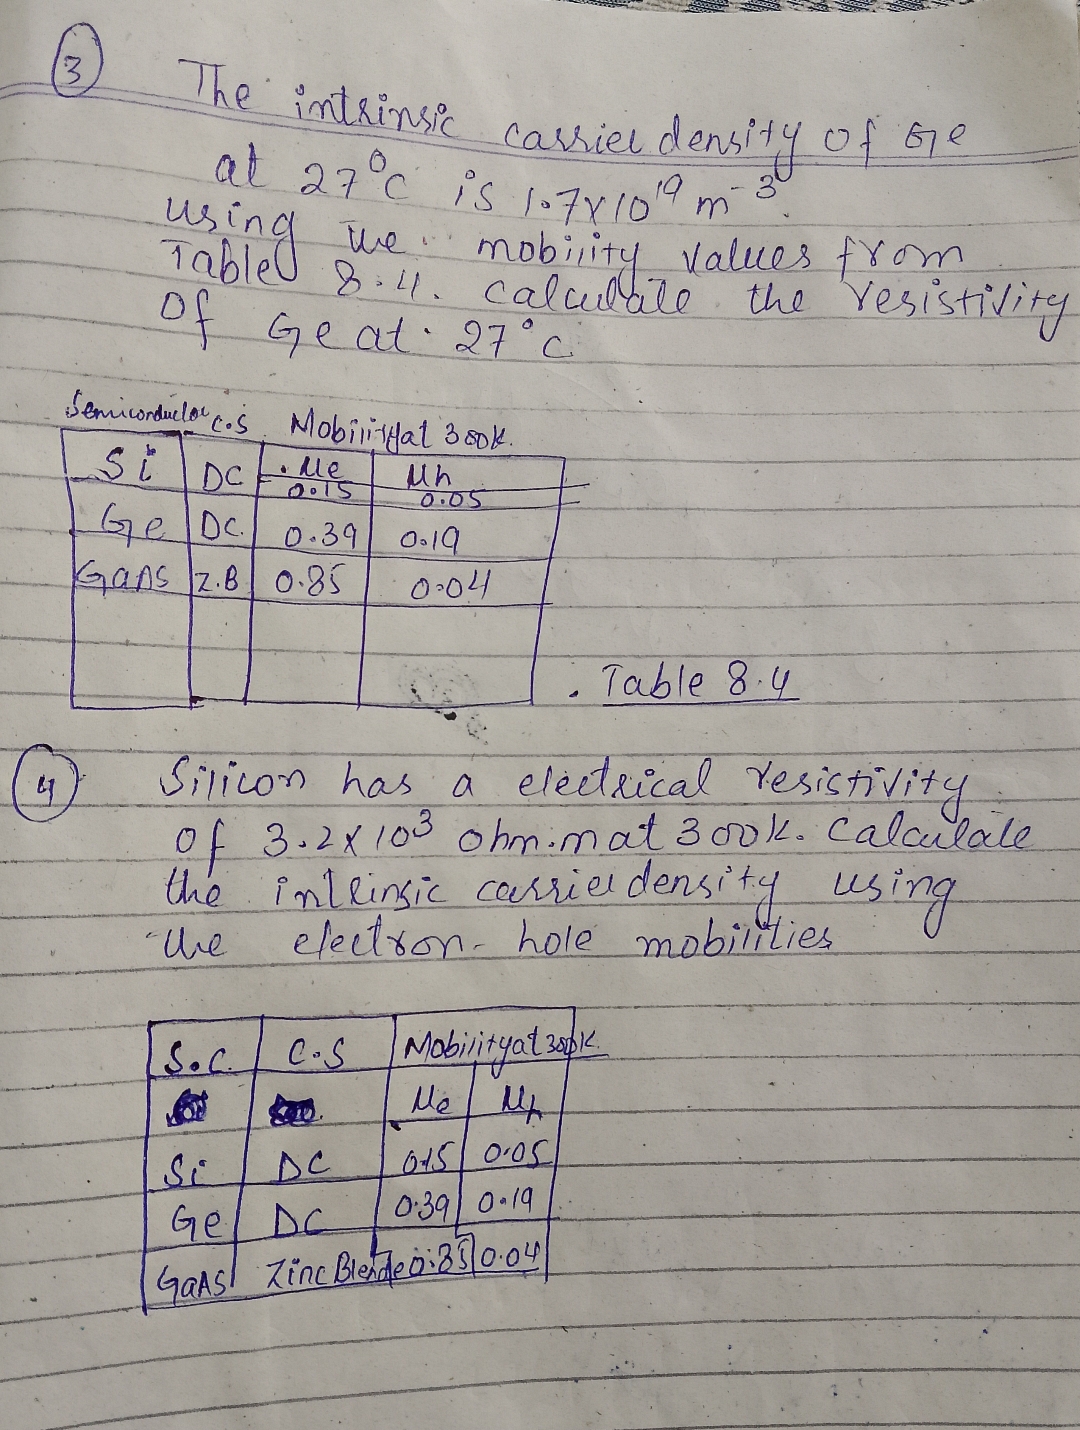 3
The intrinsic carrier density of Ge
at 27°C is 1.7x10¹⁹ m⁻³.
using the mobility values from
Table 8.4. calculate the resistivity
of Ge at 27°c
Semiconductor C.S Mobility at 300K.
Si DC Me Mh
0.15 0.05
Ge DC. 0.39 0.19
GaAs Z.B 0.85 0.04
Table 8.4
4
Silicon has a electrical resistivity
of 3.2x10³ ohm.m at 300K. Calculate
the intrinsic carrier density using
the electron-hole mobilities
S.C. C.S Mobility at 300K.
Me Mh
Si DC 0.15 0.05
Ge DC 0.39 0.19
GaAs Zinc Blende 0.85 0.04